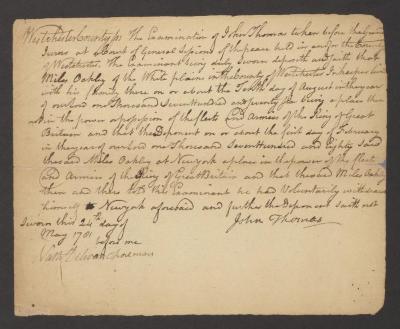 Westchester County ss The Examination of John Thomas taken before the Grand
Jurors at a Court of General Sessions of the peace held in and for the County
of Westchester. The Examinent being duly Sworn deposeth and saith that
Miles Oakly of the White plains in the County of Westchester Inkeeper lived
with his family there on or about the Tenth day of August in the year
of our lord one Thousand Seven Hundred and Seventy being a place then
not in the power or possession of the fleets and Armies of the King of Great
Britain and that the Deponent on or about the first day of February
in the year of our lord one Thousand Seven Hundred and Eighty Saw
the said Miles Oakly at New york a place in the power of the fleets
and Armies of the King of Great Britain and that the said Miles Oakly
then and there told the Examinent he had Voluntarily withdrawn
himself to New york aforesaid and further the Deponent saith not
Sworn this 24th day of John Thomas
May 1781
before me
Nath Delivan foreman